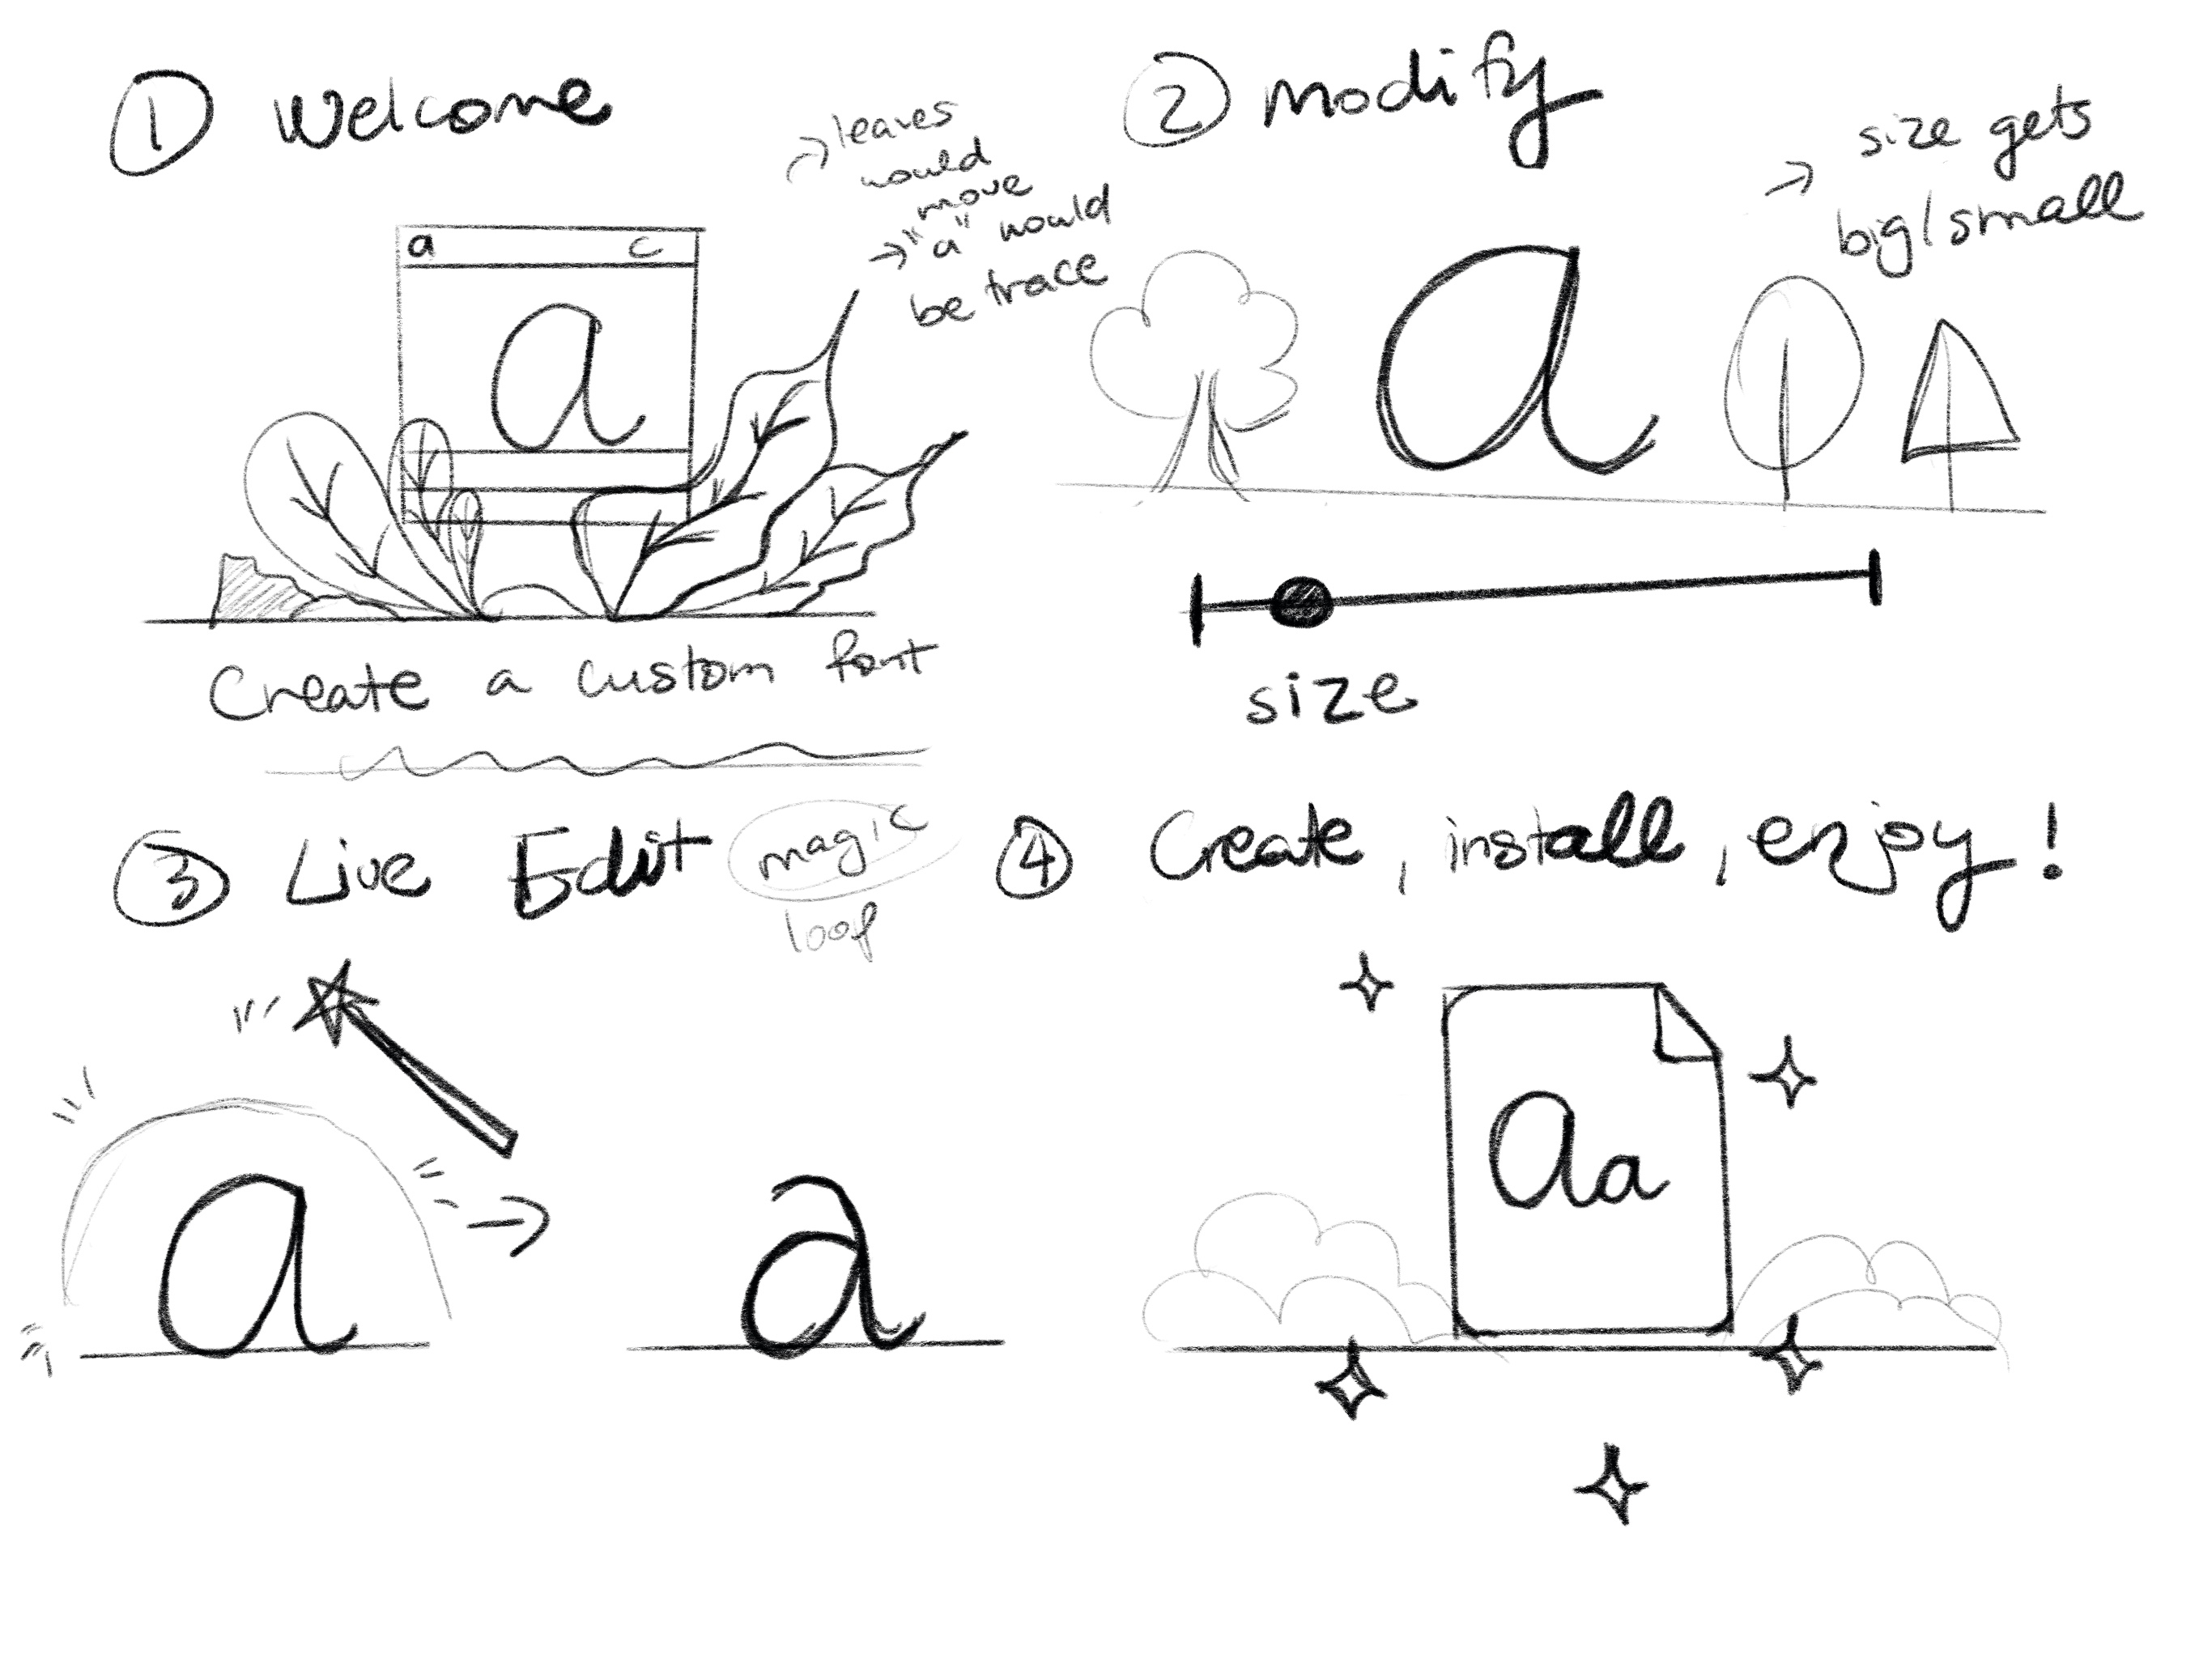 ① Welcome
→ leaves
would
move
→ "a" would
be trace
a c
a
Create a custom font
② modify
→ size gets
big/small
a
size
③ Live Edit magic
loop
a → a
④ Create, install, enjoy!
Aa